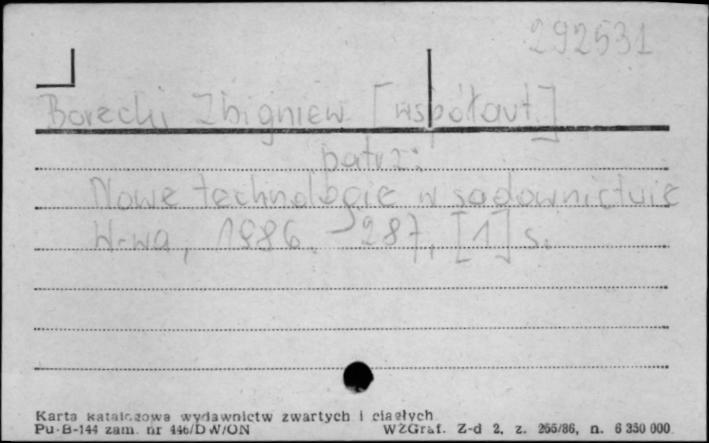 292531
Borecki Zbigniew [współaut.]
patrz:
Nowe technologie w sadownictwie
W-wa, 1986. 287, [1] s.
Karta katalogowa wydawnictw zwartych i ciągłych
Pu-B-144 zam. nr 446/DW/ON WZGraf. Z-d 2, z. 266/86, n. 6 350 000